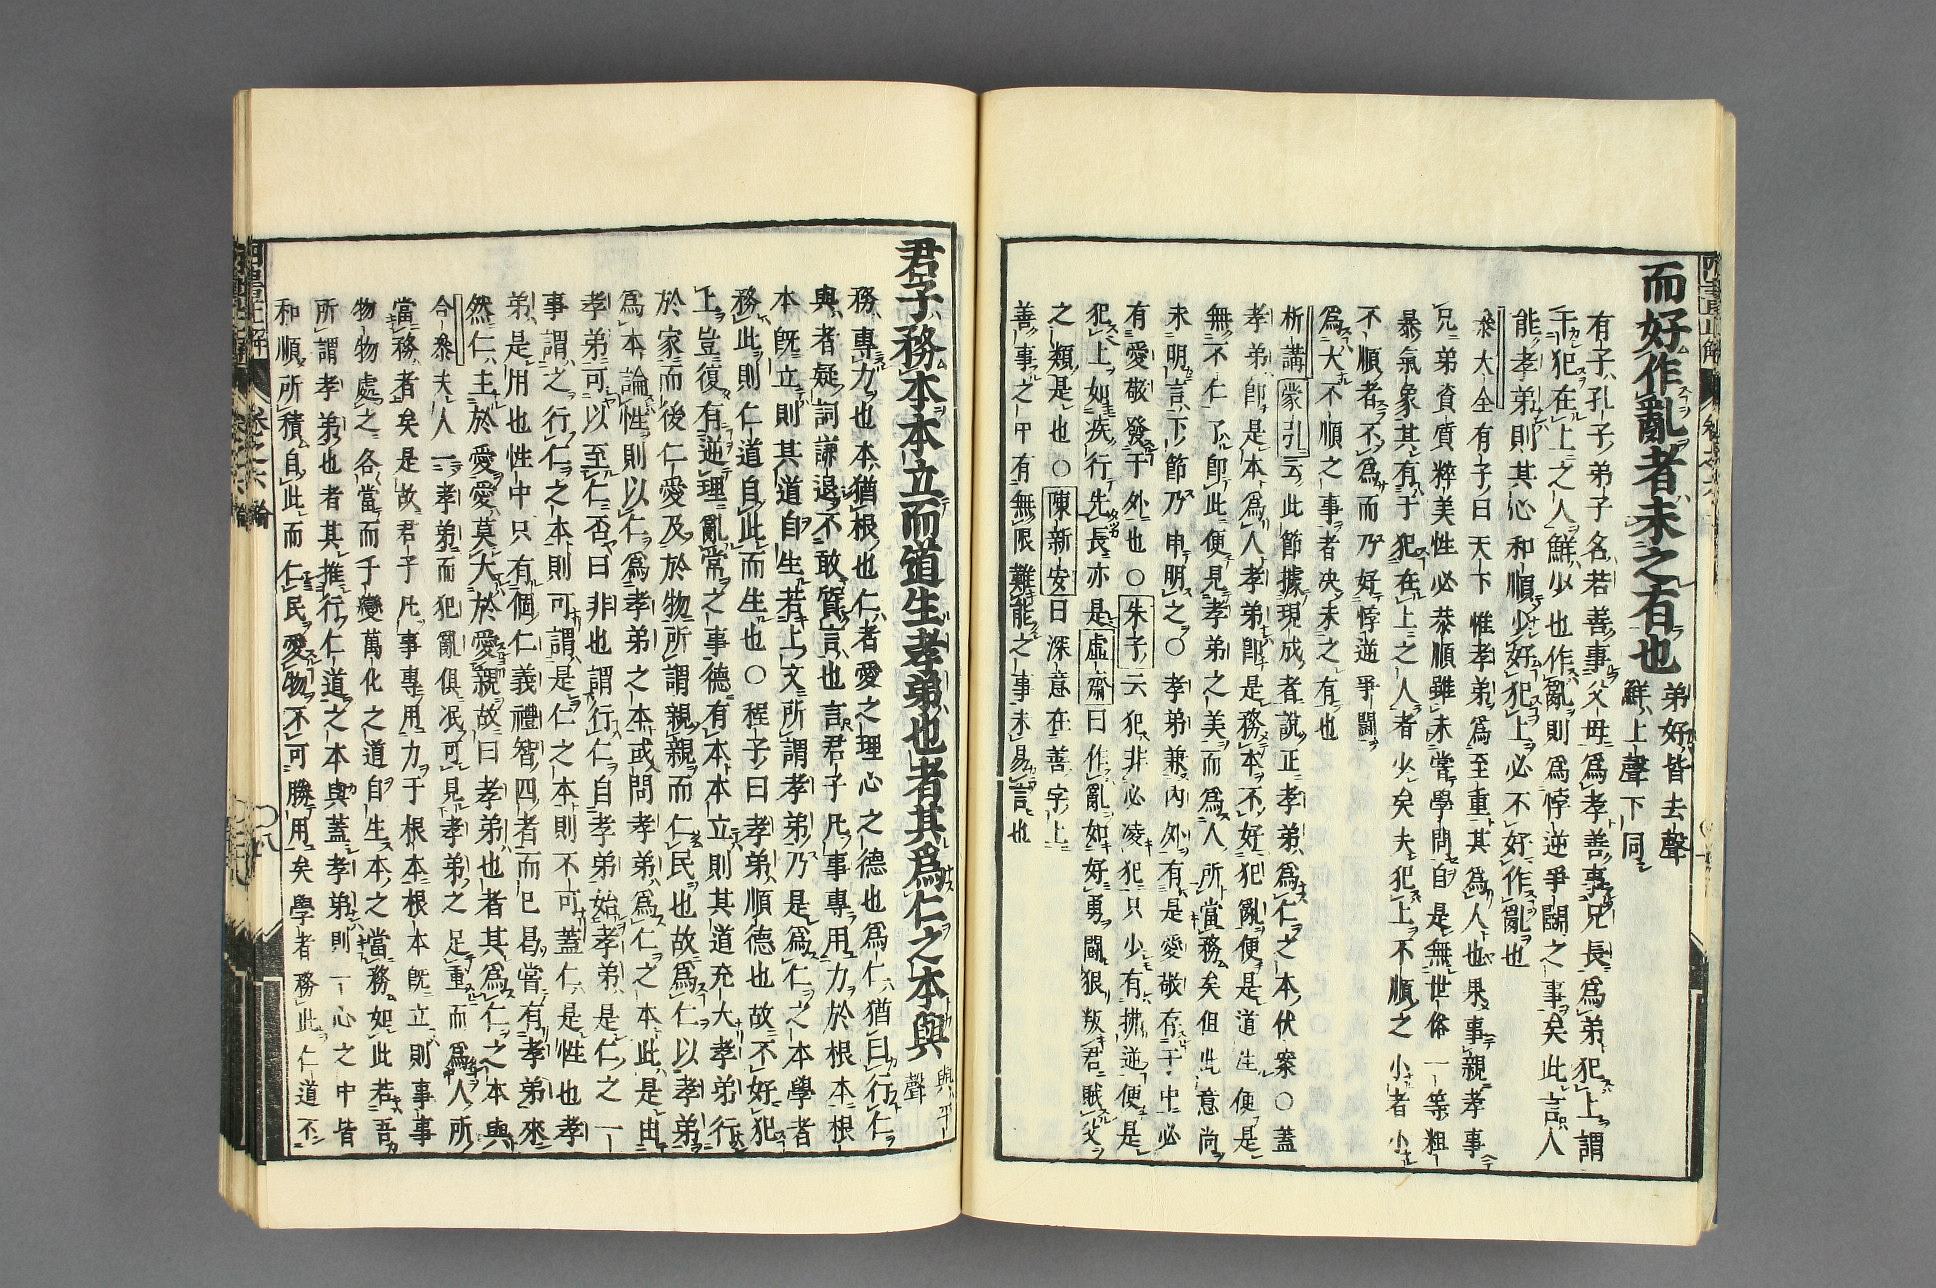 而好作亂者未之有也
弟好皆去聲
鮮上聲下同
有子孔子弟子名若善事父母爲孝善事兄長爲弟犯上謂
干犯在上之人鮮少也作亂則爲悖逆爭鬬之事矣此言人
能孝弟則其心和順少好犯上必不好作亂也
叅大全有子曰天下惟孝弟爲至重其爲人也果事親孝事
兄弟資質粹美性必恭順雖未嘗學問自是無世俗一等粗
暴氣象其有于犯在上之人者少矣夫犯上不順之小者小
不順者不爲而乃好悖逆爭鬬
爲大不順之事者决未之有也
析講蒙引云此節據現成者說正孝弟爲仁之本伏案○蓋
孝弟卽是本爲人孝弟卽是務本不好犯亂便是道生便是
無不仁了卽此便見孝弟之美而爲人所當務矣但此意尚
未明言下節乃申明之○孝弟兼內外有是愛敬存于中必
有愛敬發于外也○朱子云犯非必凌犯只少有拂逆便是
犯上如疾行先長亦是虛齋曰作亂如好勇鬬狠叛君賊父
之類是也○陳新安曰深意在善字上
善事之中有無限難能之事未易言也
君子務本本立而道生孝弟也者其爲仁之本與
與平
聲
務專力也本猶根也仁者愛之理心之德也爲仁猶曰行仁
與者疑詞謙退不敢質言也言君子凡事專用力於根本根
本既立則其道自生若上文所謂孝弟乃是爲仁之本學者
務此則仁道自此而生也○程子曰孝弟順德也故不好犯
上豈復有逆理亂常之事德有本本立則其道充大孝弟行
於家而後仁愛及於物所謂親親而仁民也故爲仁以孝弟
爲本論性則以仁爲孝弟之本或問孝弟爲仁之本此是由
孝弟可以至仁否曰非也謂行仁自孝弟始孝弟是仁之一
事謂之行仁之本則可謂是仁之本則不可蓋仁是性也孝
弟是用也性中只有個仁義禮智四者而已曷嘗有孝弟來
然仁主於愛愛莫大於愛親故曰孝弟也者其爲仁之本與
合叅夫人一孝弟而犯亂俱泯可見孝弟之足重而爲人所
當務者矣是故君子凡事專用力于根本根本既立則事事
物物處之各當而千變萬化之道自生本之當務如此若吾
所謂孝弟也者其推行仁道之本與蓋孝弟則一心之中皆
和順所積自此而仁民愛物不可勝用矣學者務此仁道不
四書正解
卷之六
論